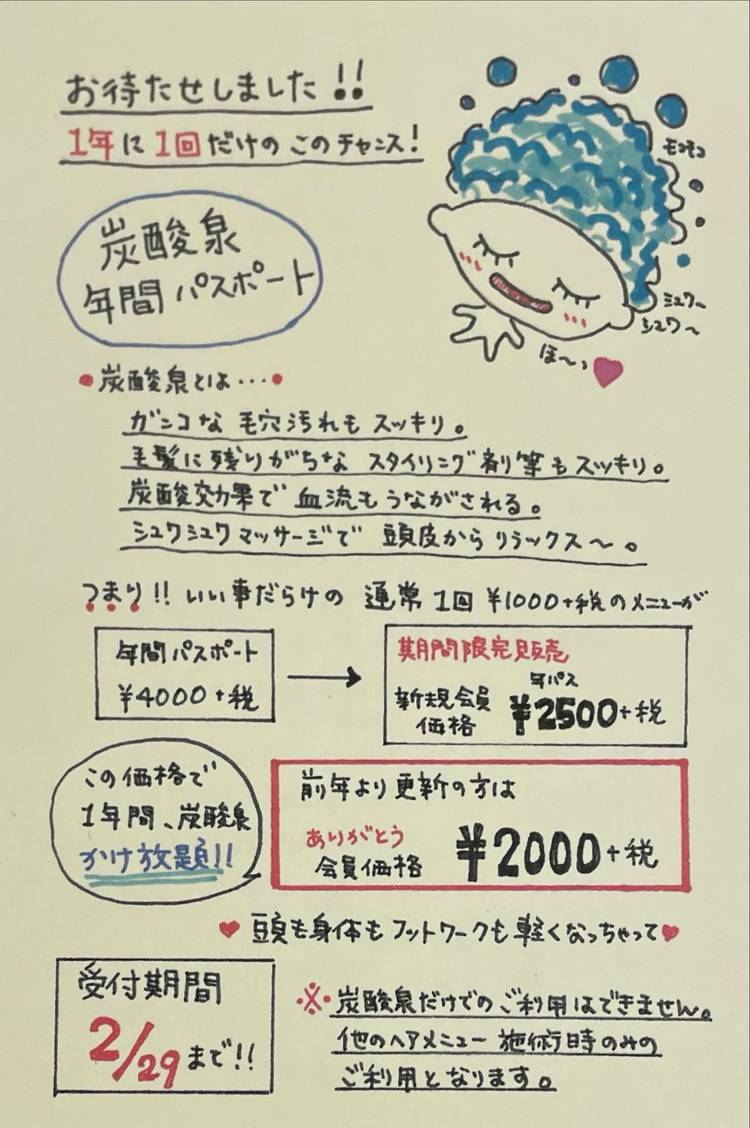 お待たせしました!!
1年に1回だけのこのチャンス!
炭酸泉
年間パスポート
モコモコ
シュワ〜
シュワ〜
ほ〜っ
炭酸泉とは・・・
ガンコな毛穴汚れもスッキリ。
毛髪に残りがちなスタイリング剤等もスッキリ。
炭酸効果で血流もうながされる。
シュワシュワマッサージで頭皮からリラックス〜。
つまり!!いい事だらけの通常1回¥1000+税のメニューが
年間パスポート
¥4000+税
期間限定販売
新規会員
価格
年パス
¥2500+税
この価格で
1年間、炭酸泉
かけ放題!!
前年より更新の方は
ありがとう
会員価格
¥2000+税
♥頭も身体もフットワークも軽くなっちゃって♥
受付期間
2/29まで!!
※炭酸泉だけでのご利用はできません。
他のヘアメニュー施術時のみの
ご利用となります。